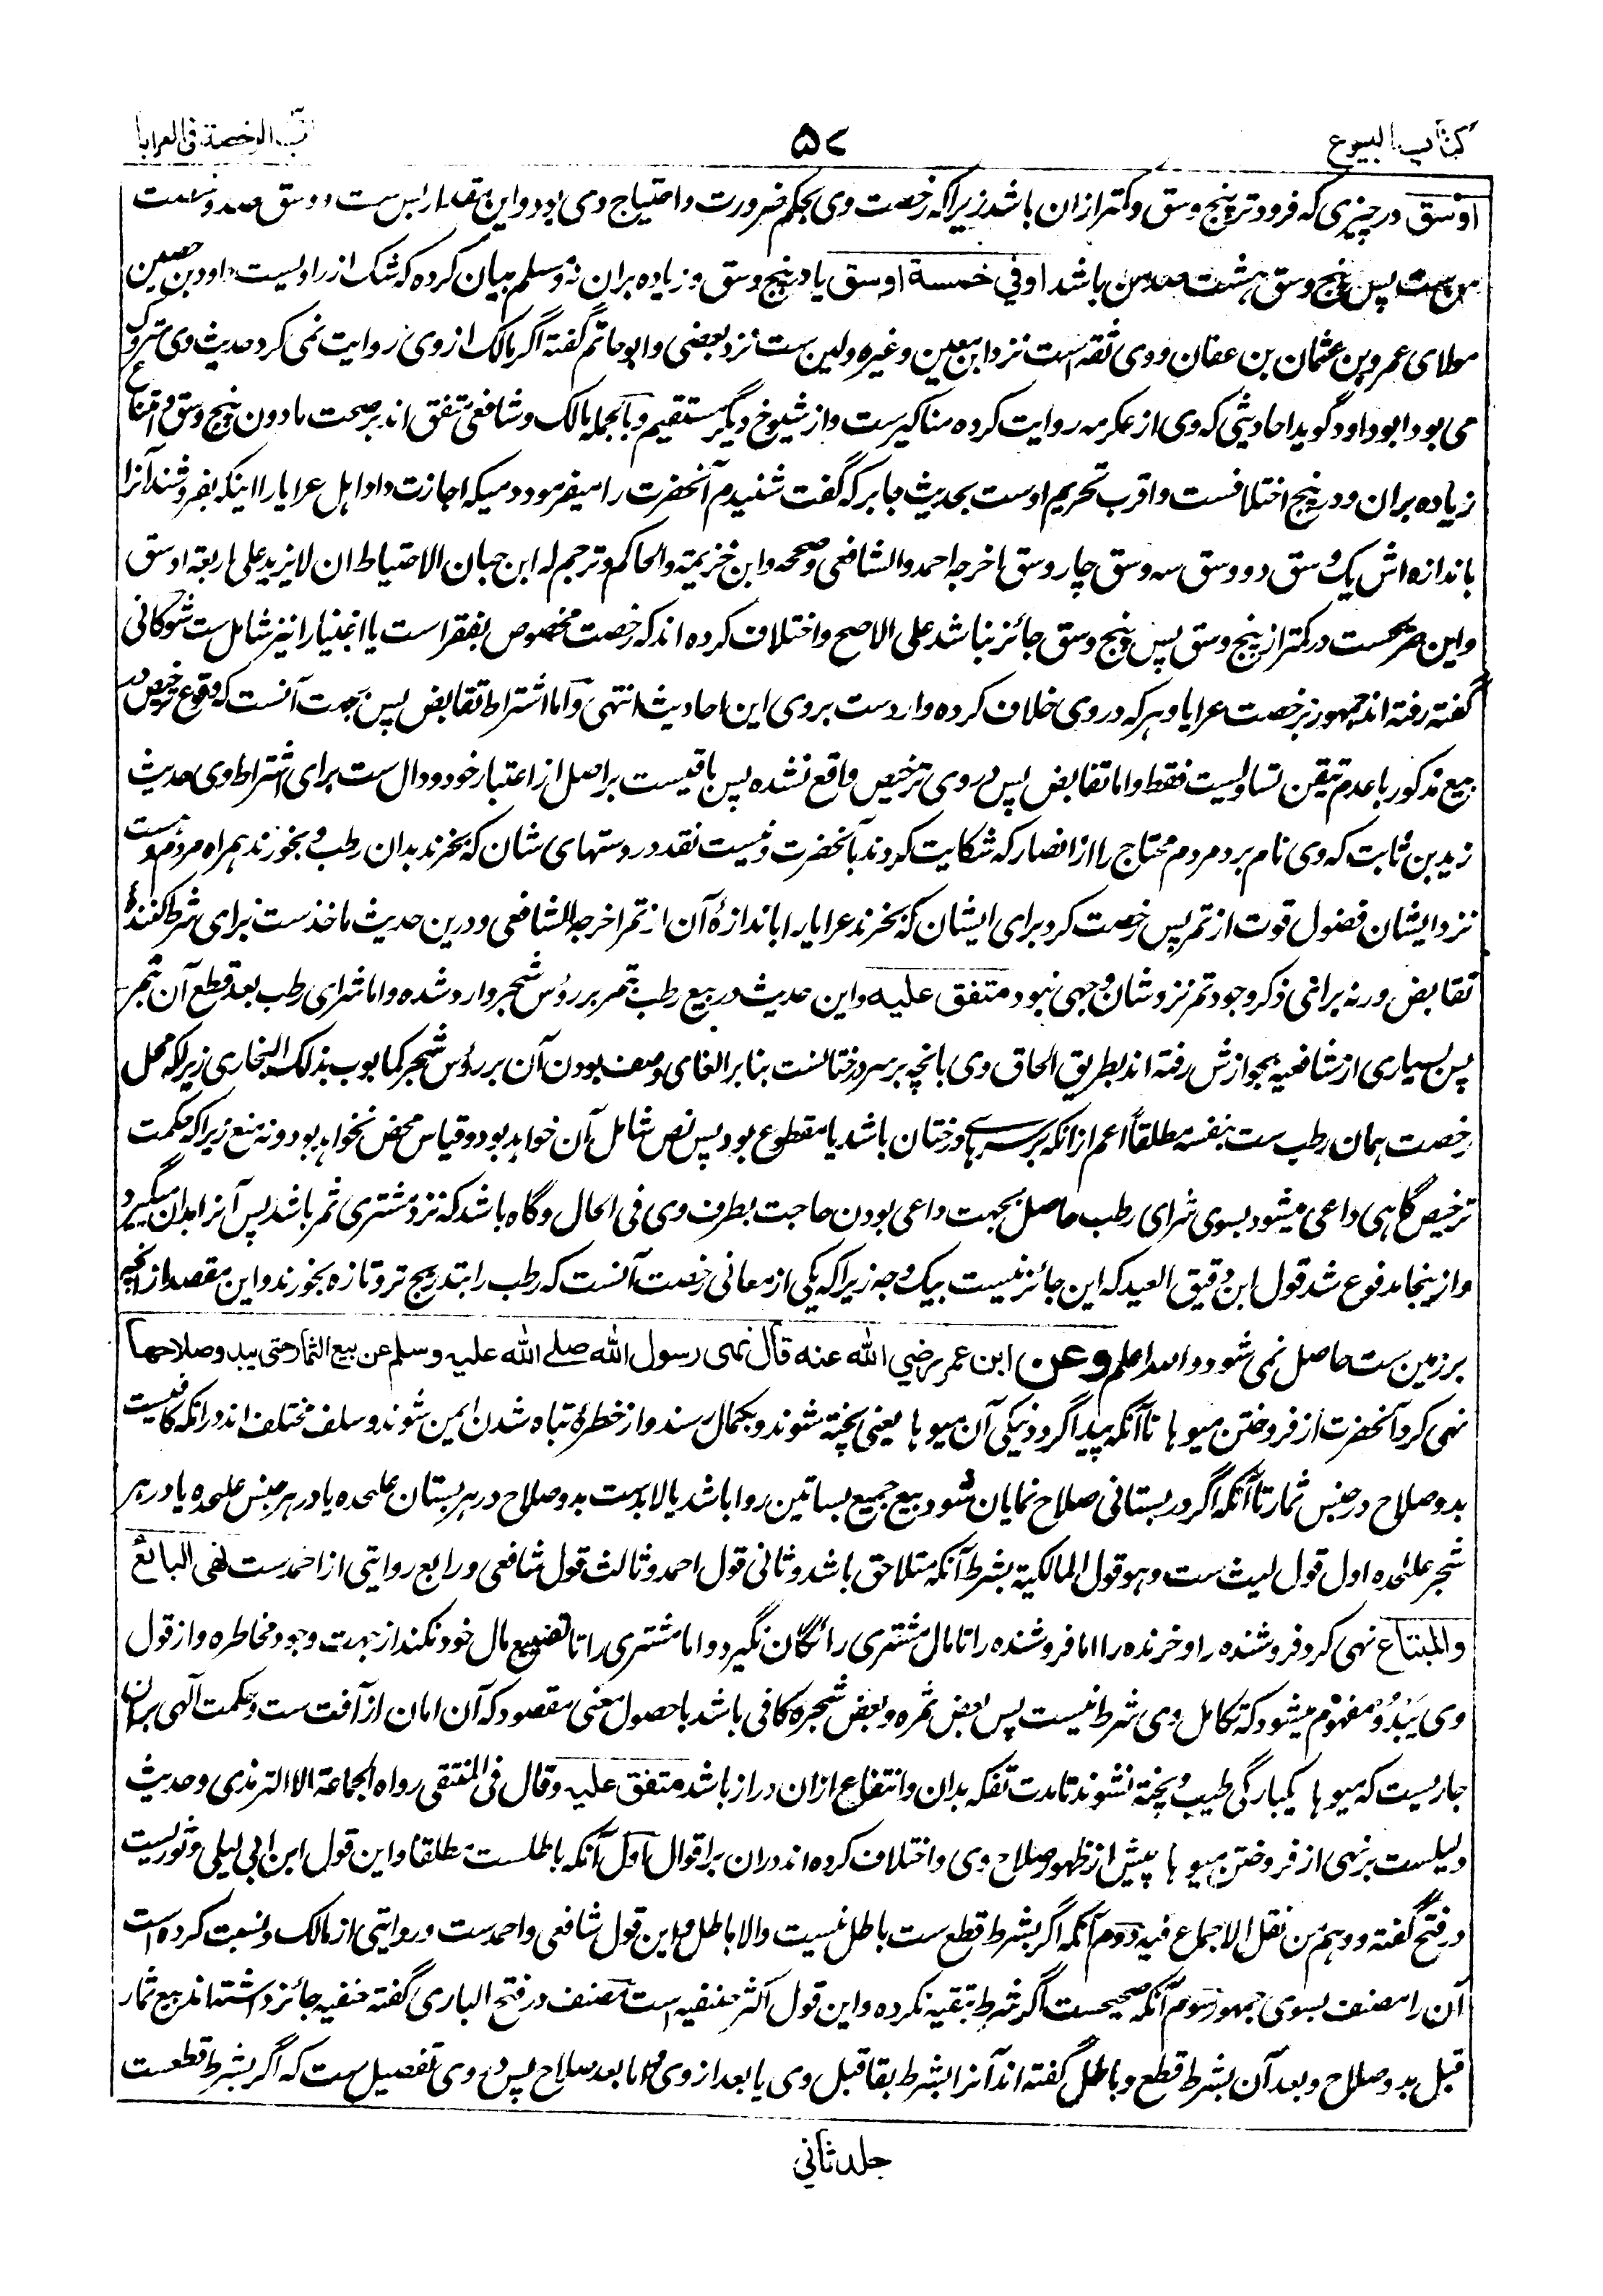 کتاب البیوع
۵۷
باب الرخصة فی العرایا
اوسق در چیزی که فروتر پنج وسق و کمتر ازان باشد زیرا که رخصت وی بحکم ضرورت و احتیاج وی بود و این مقدار بس ست و وسق صد و شصت
من ست پس پنج وسق هشت صد من باشد اوفي خمسة اوسق یا در پنج وسق و زیاده بران نه و مسلم بیان کرده که شک از راویست داود بن حصین
مولای عمرو بن عثمان بن عفان و وی ثقه است نزد ابن معین وغیره و لین ست نزد بعضی و ابوحاتم گفته اگر مالک از وی روایت نمی کرد حدیث وی متروک
می بود ابوداود گوید احادیثی که وی از عکرمه روایت کرده مناکیرست و از شیوخ دیگر مستقیم و بالجمله مالک و شافعی متفق اند بر صحت مادون پنج وسق و امتناع
زیاده بران و در پنج اختلافست و اقرب تحریم اوست بحدیث جابر که گفت شنیدم آنحضرت را میفرمود دمیکه اجازت داد اهل عرایا را اینکه بفروشند آنرا
باندازه اش یک وسق دو وسق سه وسق چار وسق اخرجه احمد والشافعی وصححه وابن خزیمة والحاکم وترجم له ابن حبان الاحتیاط ان لا یزید علی اربعة اوسق
و این صریحست در کمتر از پنج وسق پس پنج وسق جائز نباشد علی الاصح و اختلاف کرده اند که رخصت مخصوص بفقراست یا اغنیا را نیز شامل ست شوکانی
گفته رفته اند جمهور بر رخصت عرایا و هر که در وی خلاف کرده واردست بروی این احادیث انتهی و اما اشتراط تقابض پس بجهت آنست که وقوع ترخیص در
بیع مذکور با عدم تیقن تساویست فقط و اما تقابض پس در وی ترخیص واقع نشده پس باقیست بر اصل از اعتبار خود و دال ست برای اشتراط وی حدیث
زید بن ثابت که وی نام برد مردم محتاج را از انصار که شکایت کردند بآنحضرت و نیست نقد در دستهای شان که بخرند بدان رطب و بخورند همراه مردم و هست
نزد ایشان فضول قوت از تمر پس رخصت کرد برای ایشان که بخرند عرایا را باندازهٔ آن از تمر اخرجه الشافعی و درین حدیث ماخذست برای شرط کنندهٔ
تقابض ورنه برای ذکر وجود تمر نزد شان وجهی نبود متفق علیه و این حدیث در بیع رطب بتمر بر رؤس شجر وارد شده و اما شرای رطب بعد قطع آن بتمر
پس بسیاری از شافعیه بجوازش رفته اند بطریق الحاق وی بانچه بر سر درختانست بنابر الغای وصف بودن آن بر رؤس شجر کما بوب بذلک البخاری زیرا که محل
رخصت همان رطب ست بنفسه مطلقاً اعم ازانکه بر سرهای درختان باشد یا مقطوع بود پس نص شامل آن خواهد بود و قیاس محض نخواهد بود و نه منع زیرا که حکمت
ترخیص گاهی داعی میشود بسوی شرای رطب حاصل بجهت داعی بودن حاجت بطرف وی فی الحال و گاه باشد که نزد مشتری ثمر باشد پس آنرا بدان میگیرد
و ازینجا مدفوع شد قول ابن دقیق العید که این جائز نیست بیک وجه زیرا که یکی از معانی رخصت آنست که رطب را بتدریج تر و تازه بخورند و این مقصد از انچه
بر زمین ست حاصل نمی شود والله اعلم وعن ابن عمر رضي الله عنه قال نهى رسول الله صلے الله علیه وسلم عن بیع الثمار حتی یبدو صلاحها
نهی کرد آنحضرت از فروختن میوها تا آنکه پیدا گردد نیکی آن میوها یعنی پخته شوند و بکمال رسند و از خطرهٔ تباه شدن ایمن شوند و سلف مختلف اند درانکه کافیست
بدو صلاح در جنس ثمار تا آنکه اگر در بستانی صلاح نمایان شود بیع جمیع بساتین روا باشد یا لابدست بدو صلاح در هر بستان علحده یا در هر جنس علحده یا در هر
شجر علحده اول قول لیث ست وهو قول المالکیة بشرط آنکه متلاحق باشد و ثانی قول احمد و ثالث قول شافعی و رابع روایتی از احمدست نهی البائع
والمبتاع نهی کرد فروشنده را و خرنده را اما فروشنده را تا مال مشتری رائگان نگیرد و اما مشتری را تا تضییع مال خود نکند از جهت وجود مخاطره و از قول
وی یَبْدُوَ مفهوم میشود که تکامل وی شرط نیست پس بعض ثمره و بعض شجره کافی باشد با حصول معنی مقصود که آن امان از آفت ست و حکمت آلهی بران
جاریست که میوها یکبارگی طیب و پخته نشوند تا مدت تفکه بدان و انتفاع ازان دراز باشد متفق علیه وقال فی المنتقی رواه الجماعة الا الترمذی و حدیث
دلیلست بر نهی از فروختن میوها پیش از ظهور صلاح وی و اختلاف کرده اند دران بر اقوال اول آنکه باطلست مطلقا و این قول ابن ابی لیلی و ثوریست
در فتح گفته ووهم من نقل الاجماع فیه دوم آنکه اگر بشرط قطع ست باطل نیست والا باطل و این قول شافعی و احمدست و روایتی از مالک و نسبت کرده است
آن را مصنف بسوی جمهور سوم آنکه صحیحست اگر شرط تبقیه نکرده و این قول اکثر حنفیه است مصنف در فتح الباری گفته حنفیه جائز داشته اند بیع ثمار
قبل بدو صلاح و بعد آن بشرط قطع و باطل گفته اند آنرا بشرط بقا قبل وی یا بعد از وی و اما بعد صلاح پس در وی تفصیل ست که اگر بشرط قطعست
جلد ثانی